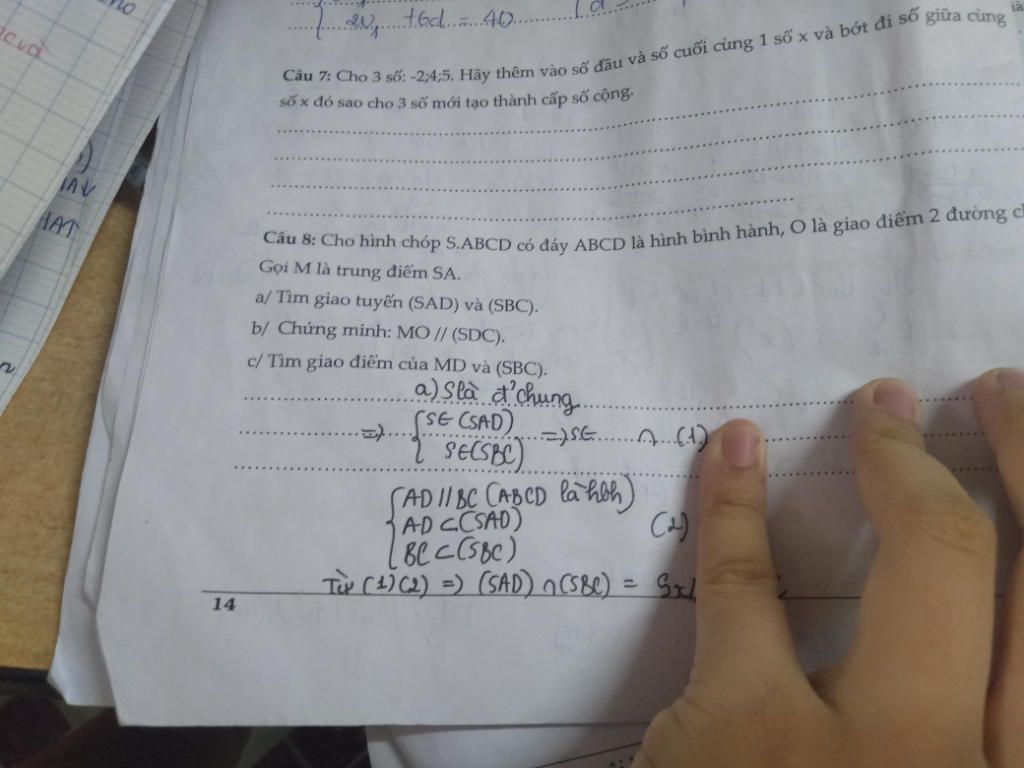 2u₁ + 6d = 40
Câu 7: Cho 3 số: -2;4;5. Hãy thêm vào số đầu và số cuối cùng 1 số x và bớt đi số giữa cùng
số x đó sao cho 3 số mới tạo thành cấp số cộng.
Câu 8: Cho hình chóp S.ABCD có đáy ABCD là hình bình hành, O là giao điểm 2 đường
Gọi M là trung điểm SA.
a/ Tìm giao tuyến (SAD) và (SBC).
b/ Chứng minh: MO // (SDC).
c/ Tìm giao điểm của MD và (SBC).
a) S là đ' chung
=> { S∈(SAD) => S∈ ∩ (1)
S∈(SBC)
{ AD // BC (ABCD là hbh)
AD ⊂ (SAD) (2)
BC ⊂ (SBC)
Từ (1) (2) => (SAD) ∩ (SBC) = Sx
14